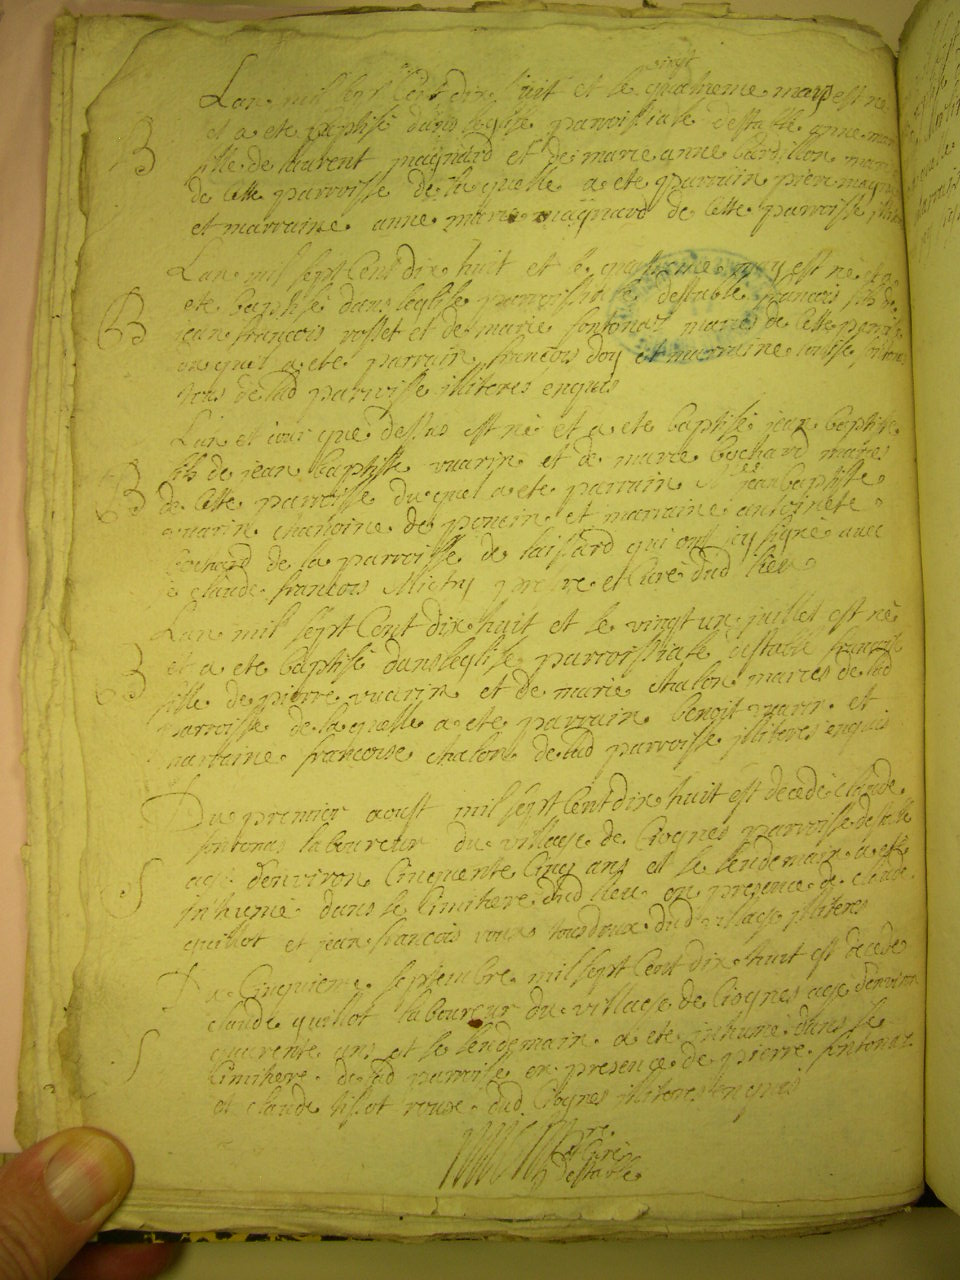 vingt
Lan mil sept Cent dix huit et le quatrieme may est ne
et a ete baptisé dans leglise parroissiale destable anne mar
B
fille de laurent maynard et de marie anne bardillon mariés
de Cette parroisse de laquelle a ete parrain piere mayna
et marraine anne marie maynard de Cette parroisse
Lan mil sept Cent dix huit et le quatrieme may est né et a
ete baptisé dans leglise parroissialle destable francois fils de
B
jean francois rosset et de marie fontenas mariés de Cette parroisse
duquel a ete parrain francois doy et marraine
tous de lad parroisse illiteres enquis
Lan et jour que dessus est né et a ete baptisé jean baptiste
fils de jean baptiste vuarin et de marie bochard mariés
B
de Cette parroisse duquel a ete parrain Sr jean baptiste
vuarin chanoine de poncin et marraine antoinete
bochard de la parroisse de laissard qui ont icy signé avec
claude francois Michy prestre et Curé dud lieu
Lan mil sept Cent dix huit et le vingt un juillet est né
et a ete baptisé dans leglise parroissiale destable francoise
B
fille de pierre vuarin et de marie chalon mariés de lad
parroisse de laquelle a ete parrain benoit vuarin et
marraine francoise chalon de lad parroisse illiteres enquis
Du premier aoust mil sept Cent dix huit est decedé claude
fontenas laboureur du village de Ciognes parroisse destable
S
agé denviron Cinquente Cinq ans et le lendemain a ete
inhumé dans le Cimitiere dud lieu en presence de claude
quillot et jean francois tous deux dud village illiteres
Du Cinquieme septembre mil sept Cent dix huit est decedé
claude quillot laboureur du village de Ciognes agé denviron
S
quarente ans et le lendemain a ete inhumé dans le
Cimitiere de lad parroisse en presence de pierre fontenas
et claude tissot roux dud Ciognes illiteres enquis
pre
et Curé
destable